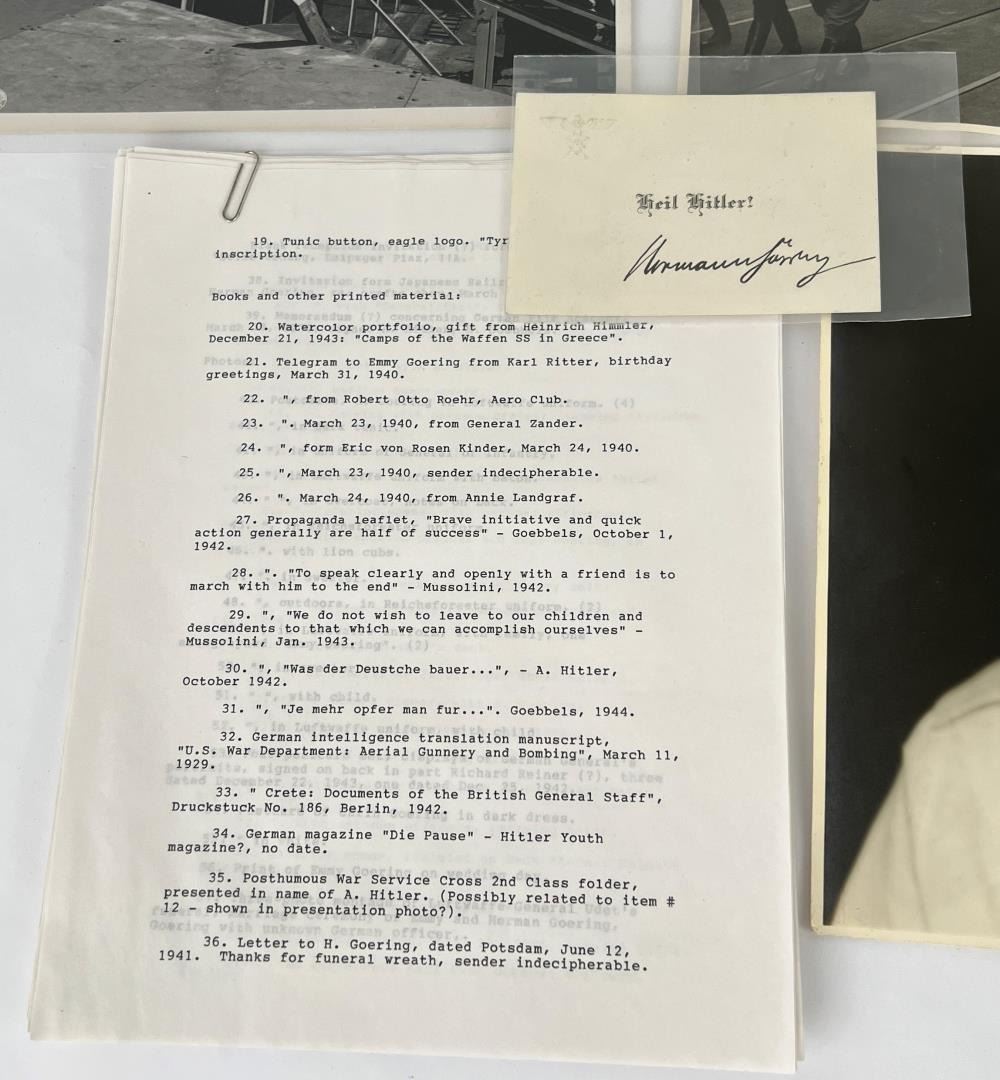 Heil Hitler!
Hermann Göring
19. Tunic button, eagle logo. "Tyr
inscription.
Books and other printed material:
20. Watercolor portfolio, gift from Heinrich Himmler,
December 21, 1943: "Camps of the Waffen SS in Greece".
21. Telegram to Emmy Goering from Karl Ritter, birthday
greetings, March 31, 1940.
22. ", from Robert Otto Roehr, Aero Club.
23. ". March 23, 1940, from General Zander.
24. ", form Eric von Rosen Kinder, March 24, 1940.
25. ", March 23, 1940, sender indecipherable.
26. ". March 24, 1940, from Annie Landgraf.
27. Propaganda leaflet, "Brave initiative and quick
action generally are half of success" - Goebbels, October 1,
1942.
28. ". "To speak clearly and openly with a friend is to
march with him to the end" - Mussolini, 1942.
29. ", "We do not wish to leave to our children and
descendents to that which we can accomplish ourselves" -
Mussolini, Jan. 1943.
30. ", "Was der Deustche bauer...", - A. Hitler,
October 1942.
31. ", "Je mehr opfer man fur...". Goebbels, 1944.
32. German intelligence translation manuscript,
"U.S. War Department: Aerial Gunnery and Bombing", March 11,
1929.
33. " Crete: Documents of the British General Staff",
Druckstuck No. 186, Berlin, 1942.
34. German magazine "Die Pause" - Hitler Youth
magazine?, no date.
35. Posthumous War Service Cross 2nd Class folder,
presented in name of A. Hitler. (Possibly related to item #
12 - shown in presentation photo?).
36. Letter to H. Goering, dated Potsdam, June 12,
1941. Thanks for funeral wreath, sender indecipherable.